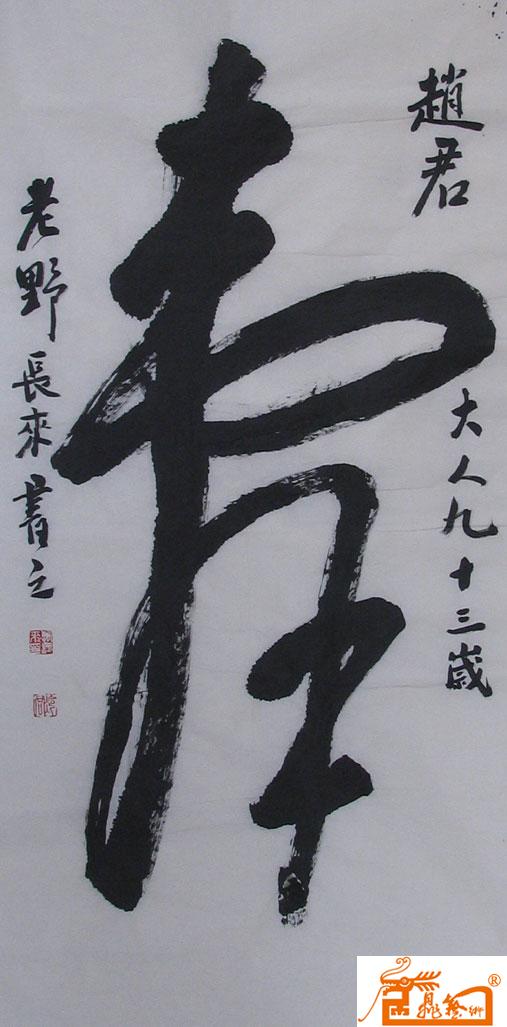 趙君
大人九十三歲
壽
老野長來書之